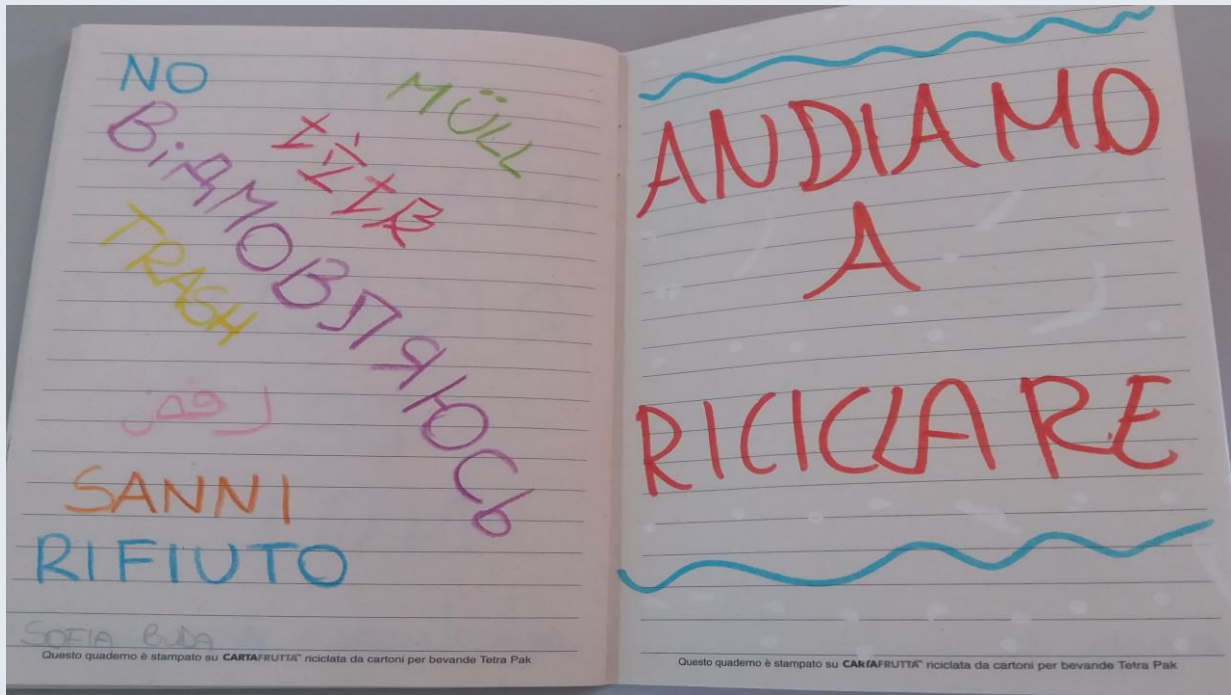 NO
MÜLL
ВіДМОВЛЯЮСЬ
TRASH
رفض
SANNI
RIFIUTO
SOFIA BUDA
Questo quaderno è stampato su CARTAFRUTTA™ riciclata da cartoni per bevande Tetra Pak
ANDIAMO
A
RICICLARE
Questo quaderno è stampato su CARTAFRUTTA™ riciclata da cartoni per bevande Tetra Pak